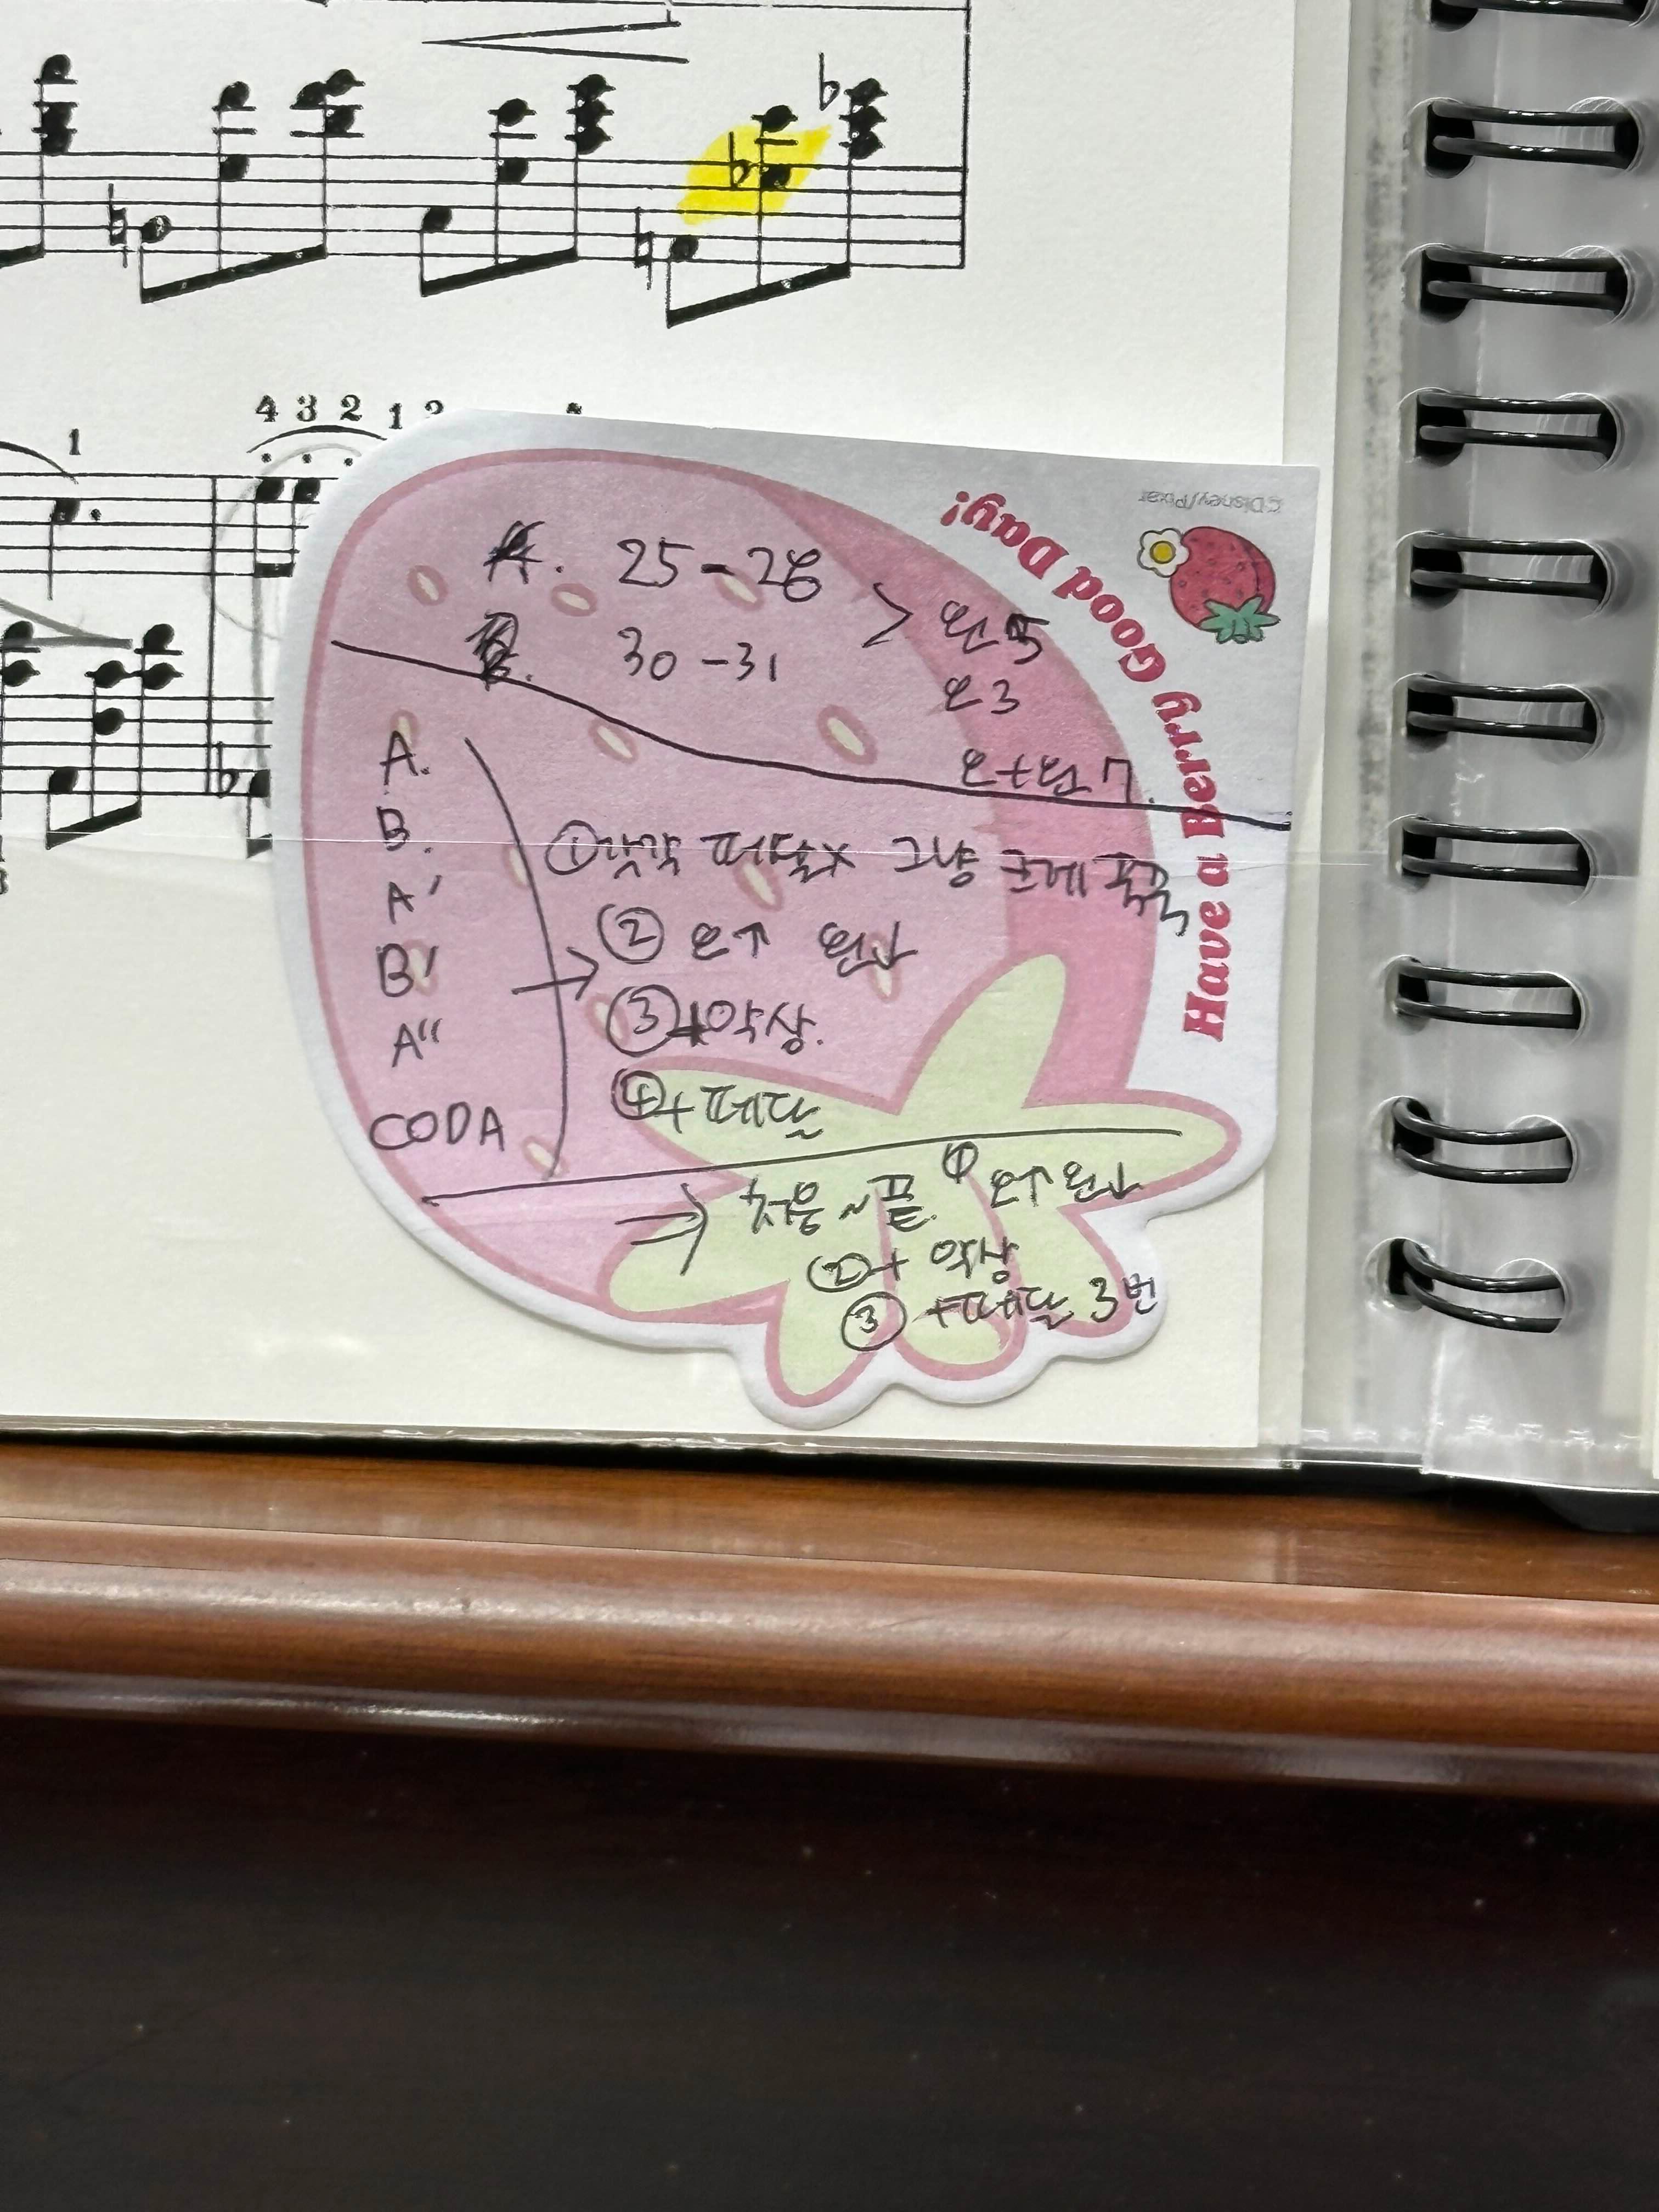 4 3 2 1 2
1
©Disney/Pixar
Have a Berry Good Day!
25-28 > 왼5
30-31
오3
오+왼 7.
A.
B.
A'
B'
A"
CODA
①각각 페달x 그냥 프레즐
② 오↑ 왼↓
③+악상.
④+페달
처음~끝. ① 오↑ 왼↓
②+ 악상
③ +페달 3번